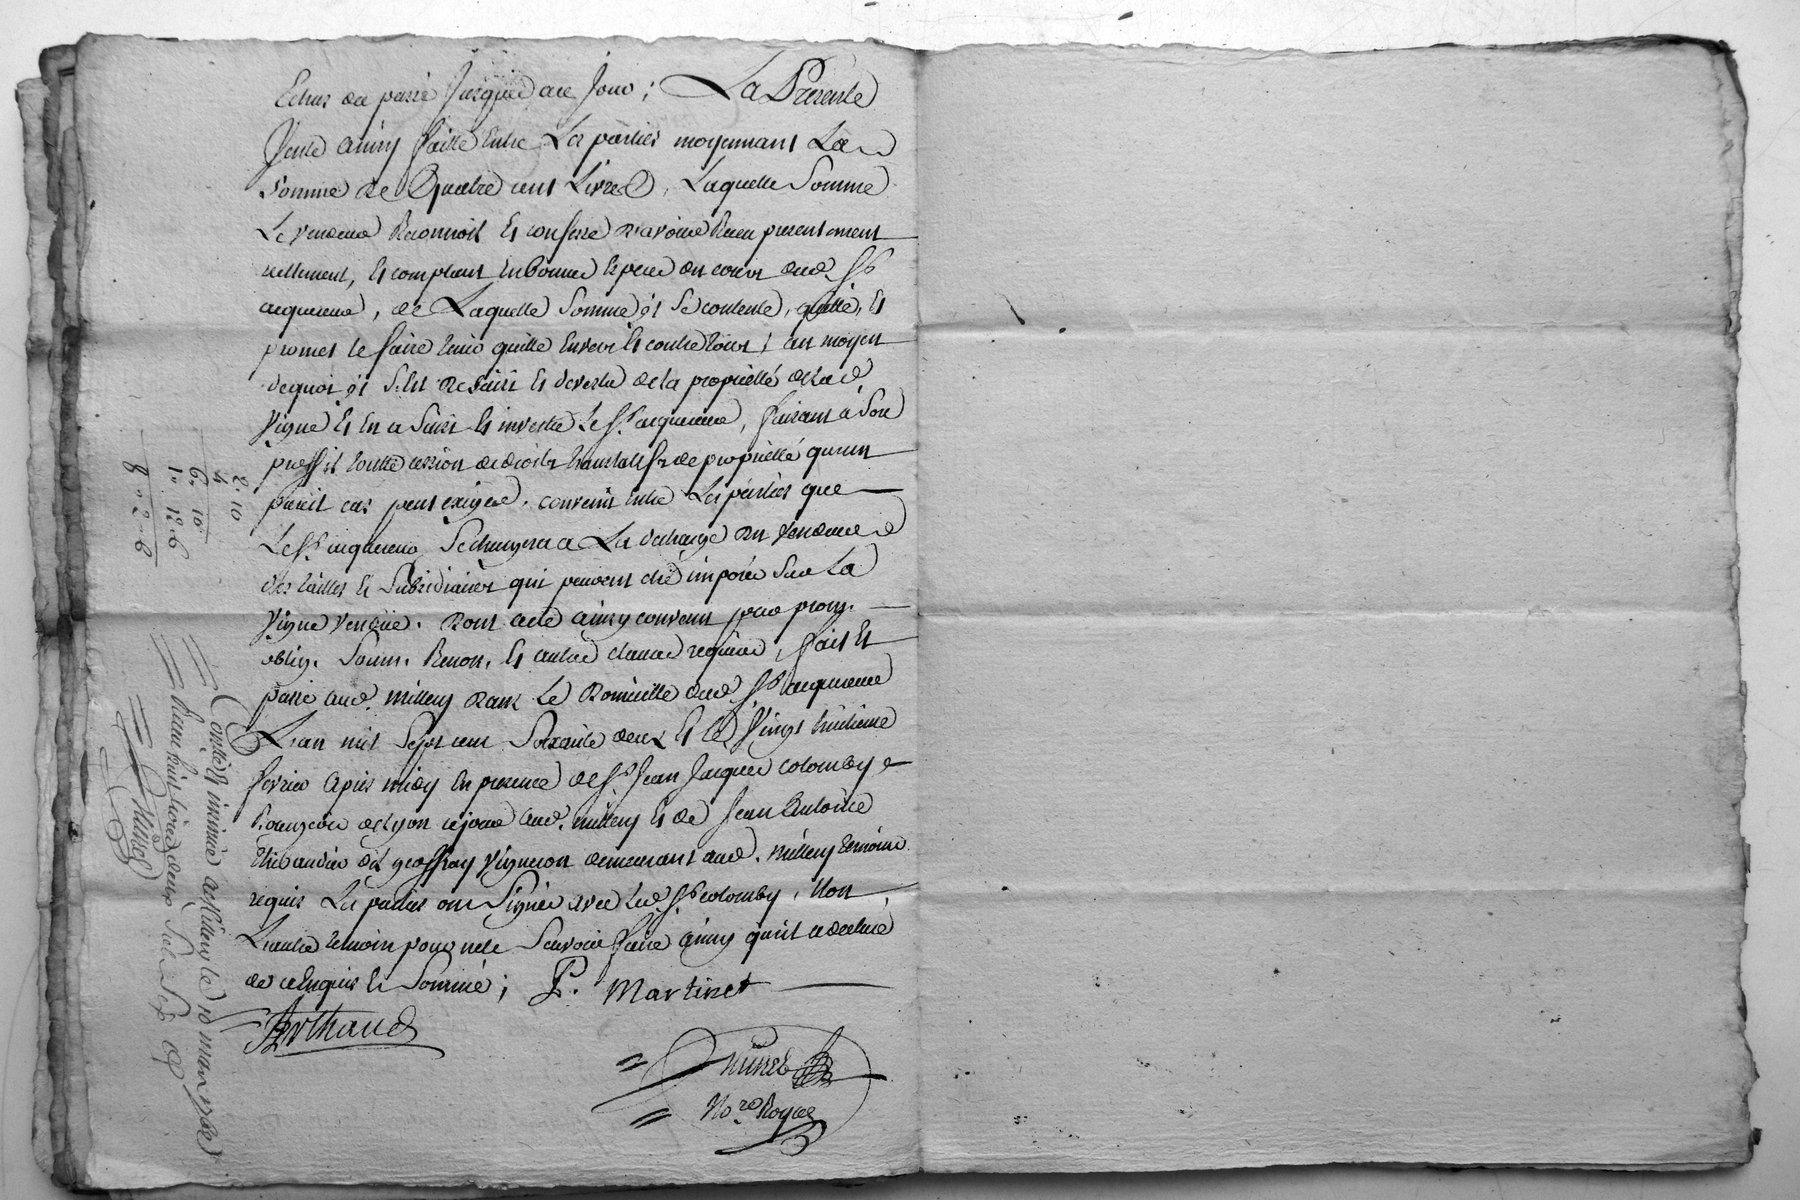 Echus du passé Jusques a ce Jour ; La Presente
Vente ainsy faitte Entre Les parties moyennant La
Somme de Quatre cent Livres, Laquelle Somme
Le vendeur Reconnoit Et confesse d'avoir Receu presentement
reellement, Et comptant En bonnes Espece du cours dud. Sr
acquereur, de Laquelle Somme il Se contente, quitte, Et
promet le faire tenir quitte Envers Et contre tous ; au moyen
dequoi il S'est Desaisi Et devestu de la propriété de lad.
Vigne Et En a Saisi Et investi Le Sr. acquereur, faisant à Son
proffit toutte cession de droits translatifs de propriété qu'un
pareil cas peut exiger. convenu Entre Les parties que
Le Sr. acquereur Se chargera a La decharge du Vendeur
des tailles Et Subsidiaires qui peuvent etre imposés Sur La
Vigne Vendüe. Dont acte ainsy convenu pour prom.
oblig. Soum. Renon. Et autres clauses requises, fait Et
passé aud. millery Dans Le Domicille dud. Sr. acquereur
L'an mil Sept cent Soixante deux Et le Vingt huitieme
fevrier apres midy En presence de Sr. Jean Jacques colomby
Bourgeois de Lyon sejour aud. millery Et de Jean Antoine
thibaudier dit geoffray Vigneron demeurant aud. millery temoins
requis Les parties ont Signés avec Led. Sr. colomby, Non
L'autre temoin pour ne le Scavoir faire ainsy qu'il a declaré
de ce Enquis Et Sommé ; P. Martinet
Arthaud
Nore. Royal
2. 10
4
6. 10
1. 12. 6
8. 2. 6
Controllé insinué a Millery le 10 mars 1762
Receu huit livres deux Sols Six d.